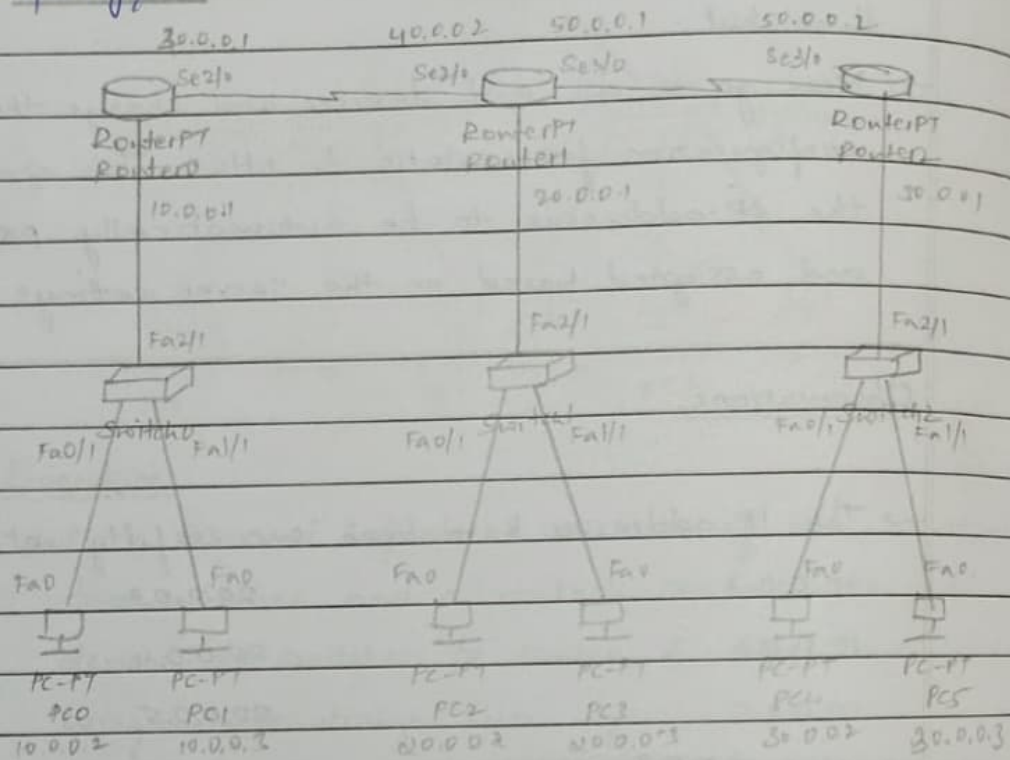 30.0.0.1 40.0.0.2 50.0.0.1 50.0.0.2
Se2/0 Se2/0 Se3/0 Se3/0
RouterPT RouterPT RouterPT
Router0 Router1 Router2
10.0.0.1 20.0.0.1 30.0.0.1
Fa2/1 Fa2/1 Fa2/1
Switch0 Switch1 Switch2
Fa0/1 Fa1/1 Fa0/1 Fa1/1 Fa0/1 Fa1/1
Fa0 Fa0 Fa0 Fa0 Fa0 Fa0
PC-PT PC-PT PC-PT PC-PT PC-PT PC-PT
PC0 PC1 PC2 PC3 PC4 PC5
10.0.0.2 10.0.0.3 20.0.0.2 20.0.0.3 30.0.0.2 30.0.0.3